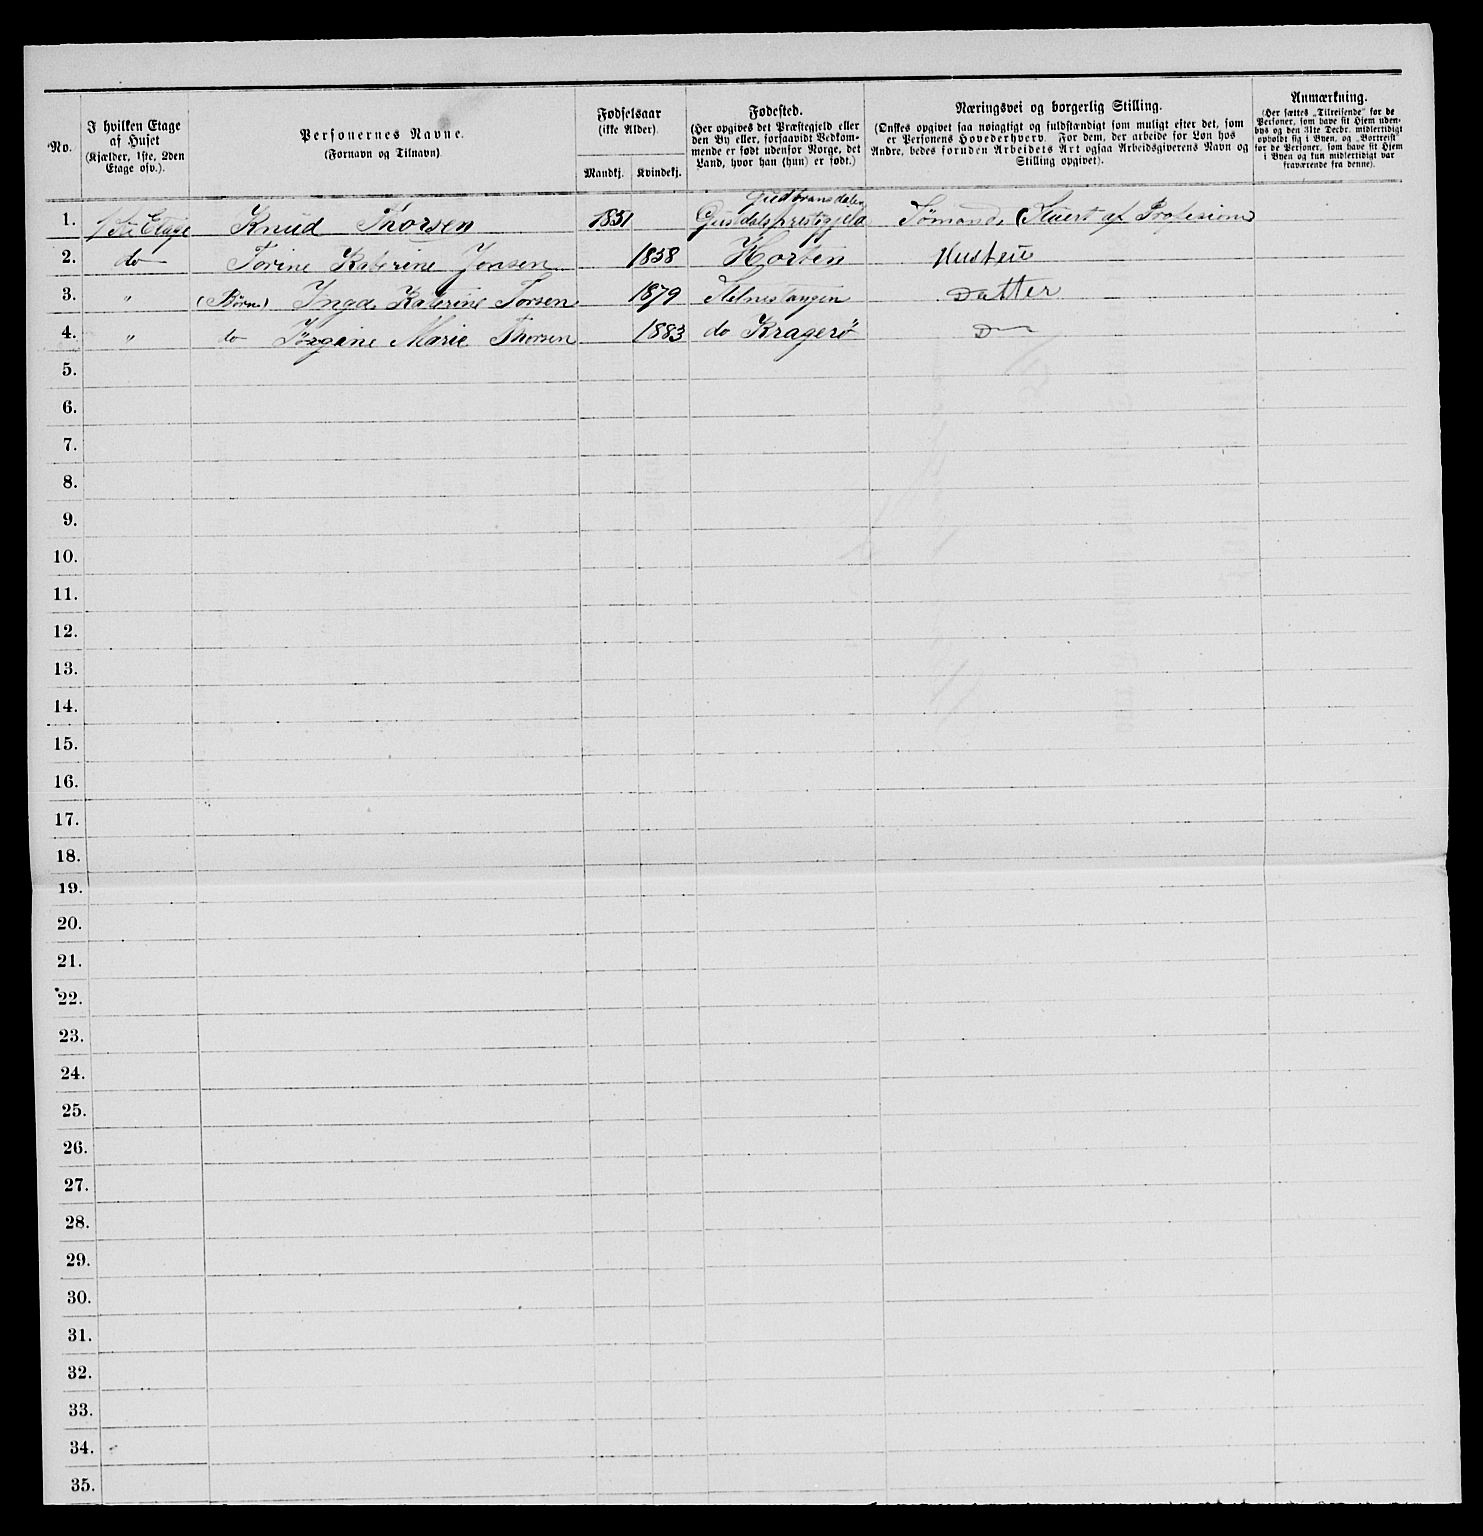 No.
I hvilken Etage
af Huset
(Kjælder, 1ste, 2den
Etage osv.).
Personernes Navne.
(Fornavn og Tilnavn)
Fødselsaar
(ikke Alder).
Mandkj. Kvindekj.
Fødested.
(Her opgives det Præstegjeld eller
den By eller, forsaavidt Vedkom-
mende er født udenfor Norge, det
Land, hvor han (hun) er født.)
Næringsvei og borgerlig Stilling.
(Ønskes opgivet saa nøiagtigt og fuldstændigt som muligt efter det, som
er Personens Hovederhverv. For dem, der arbeide for Løn hos
Andre, bedes foruden Arbeidets Art ogsaa Arbeidsgiverens Navn og
Stilling opgivet).
Anmærkning.
(Her sættes „Tilreisende" for de
Personer, som have sit Hjem uden-
bys og den 31te Decbr. midlertidigt
opholdt sig i Byen, og „Bortreist"
for de Personer, som have sit Hjem
i Byen og kun midlertidigt var
fraværende fra denne).
Gudbransdalen
1. 1ste Etage Knud Thorsen 1851 Sømand (Stuert af Profesion
2. do Torine Katerine Jonsen 1858 Horten Hustru
3. " (Børn) Inga Katerine Torsen 1879 Datter
4. " do Jørgine Marie Thorsen 1883 do Kragerø D
5.
6.
7.
8.
9.
10.
11.
12.
13.
14.
15.
16.
17.
18.
19.
20.
21.
22.
23.
24.
25.
26.
27.
28.
29.
30.
31.
32.
33.
34.
35.